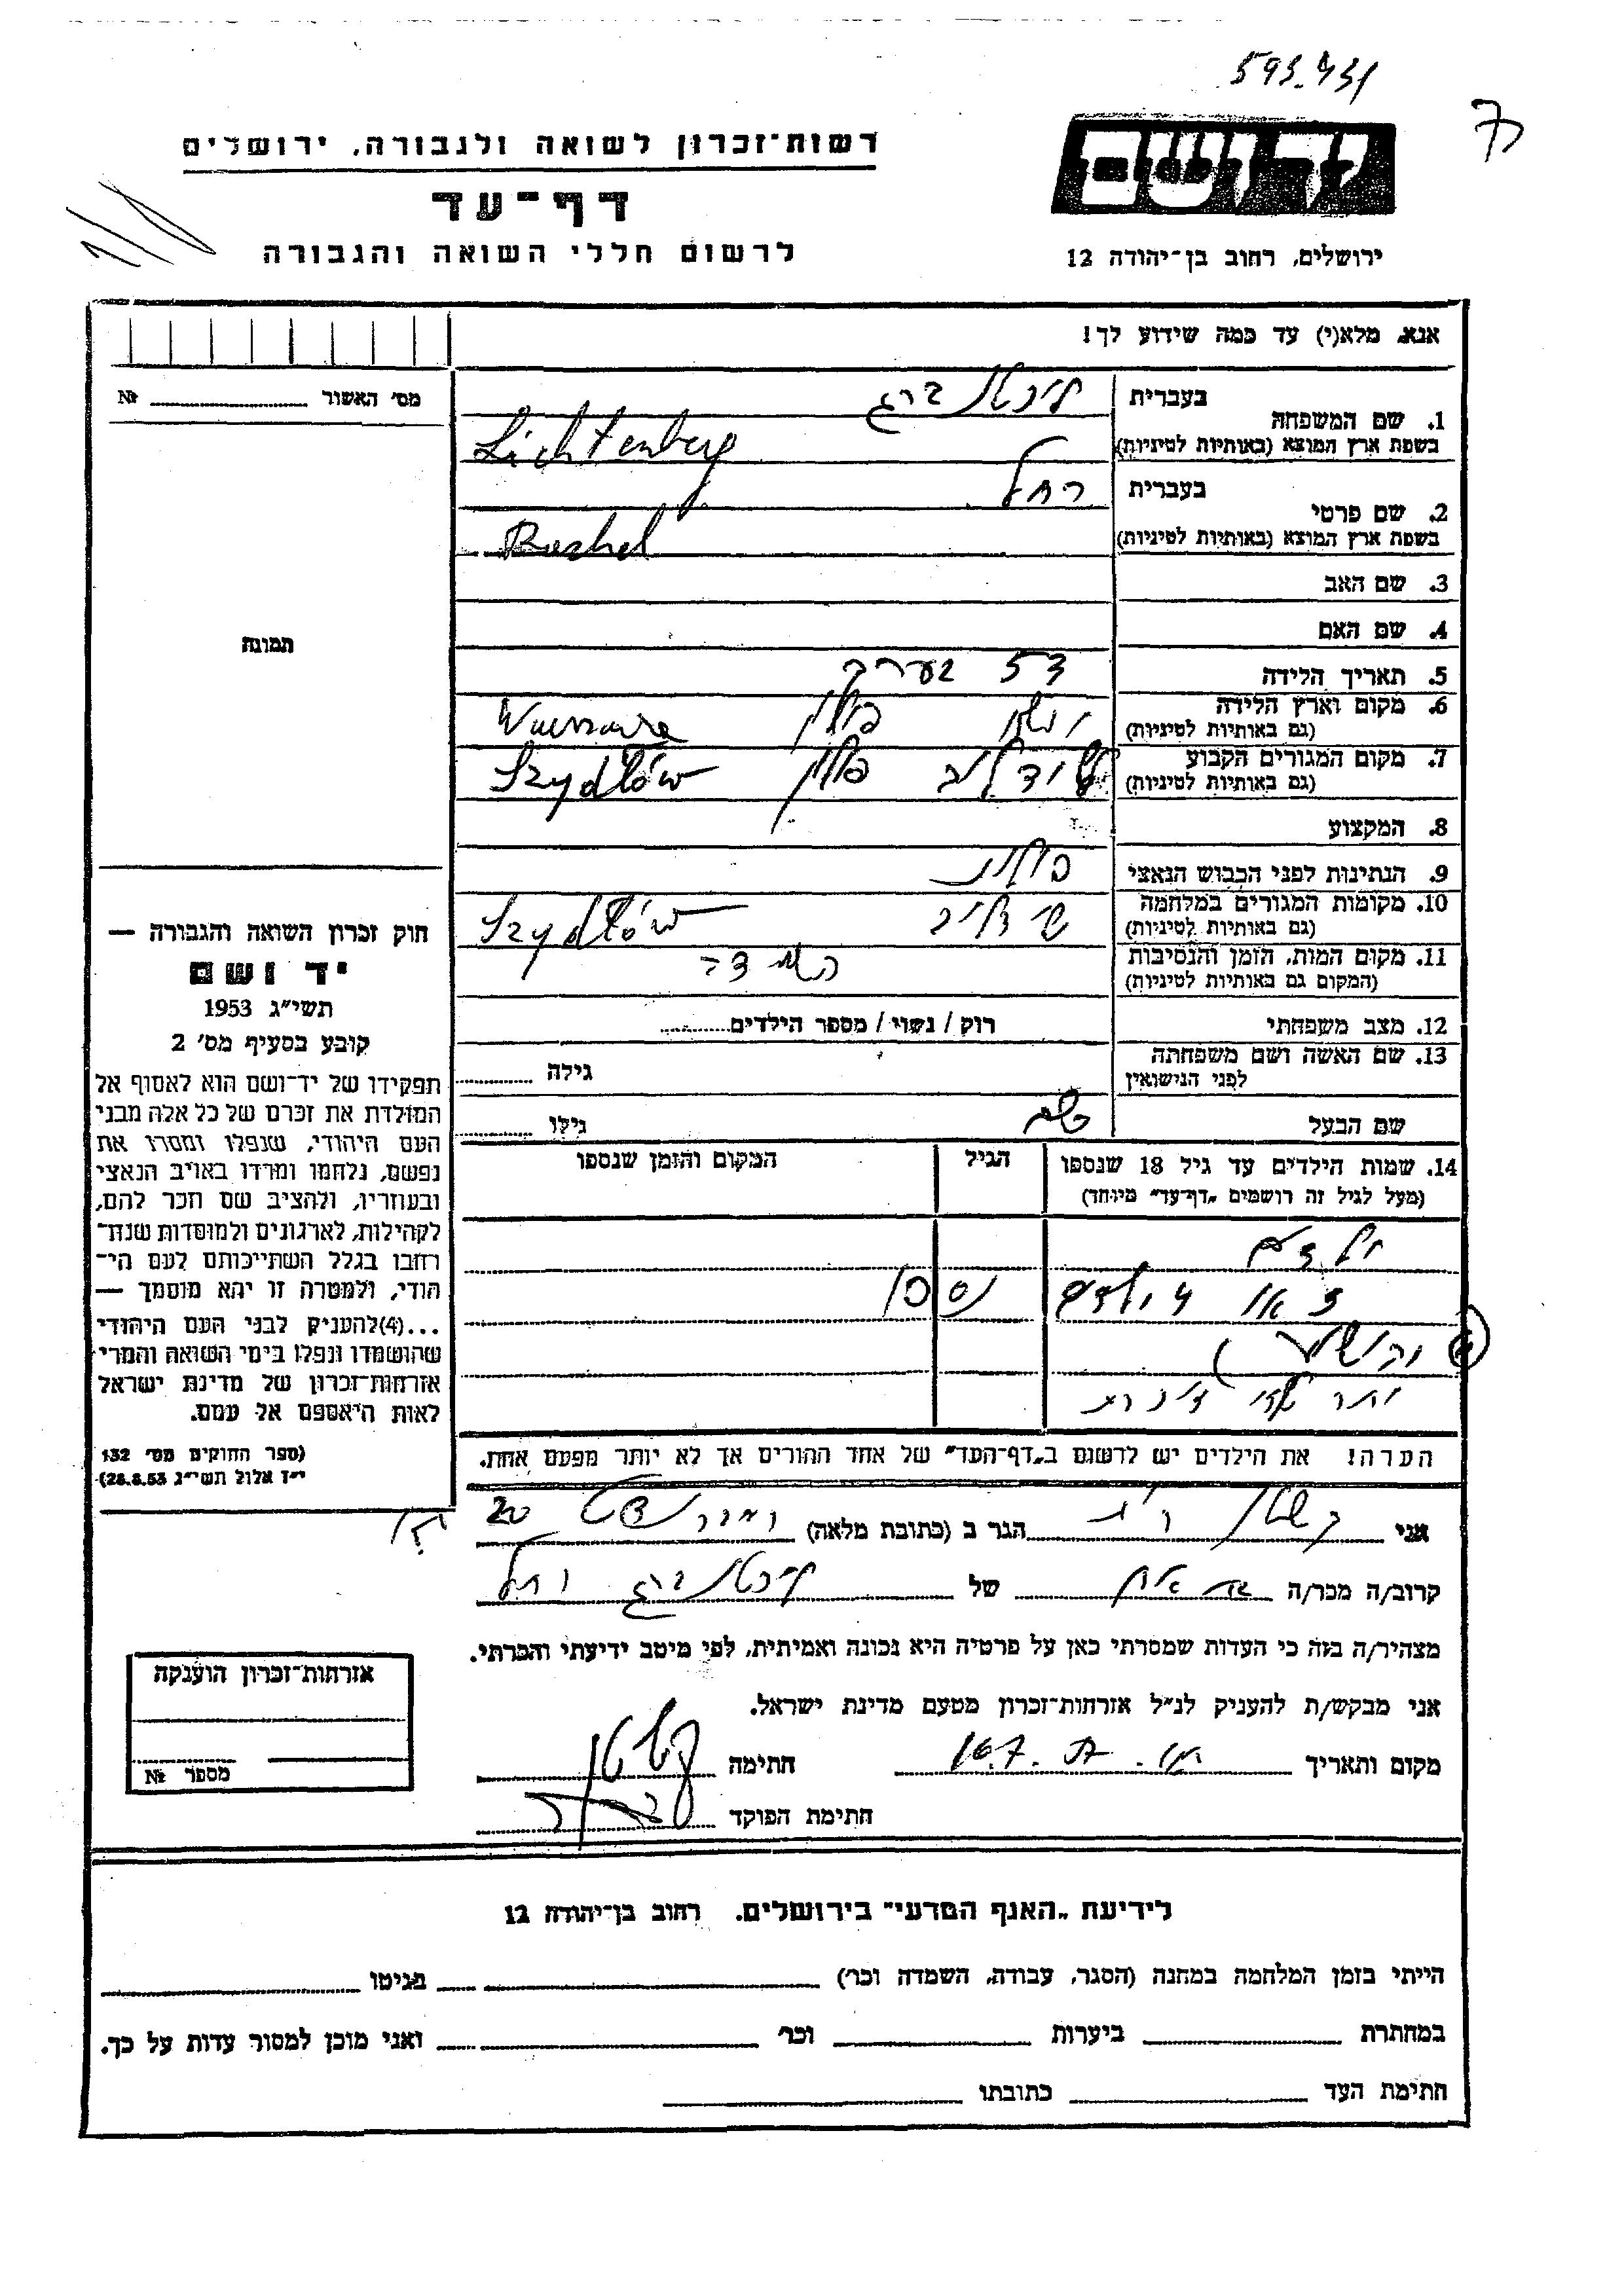 593431
רשות־זכרון לשואה ולגבורה, ירושלים
דף־עד
לרשום חללי השואה והגבורה
ידושם
ירושלים, רחוב בן־יהודה 12
אנא, מלא(י) עד כמה שידוע לך!
מס׳ האשור № 
1. שם המשפחה בעברית ליכטנברג
בשפת ארץ המוצא (באותיות לטיניות) Lichtenberg
2. שם פרטי בעברית רחל
בשפת ארץ המוצא (באותיות לטיניות) Rachel
3. שם האב
4. שם האם
תמונה
5. תאריך הלידה 35 בערך
6. מקום וארץ הלידה פולין
(גם באותיות לטיניות)
7. מקום המגורים הקבוע שידלוב פולין Szydłów
(גם באותיות לטיניות)
8. המקצוע
9. הנתינות לפני הכבוש הנאצי פולנית
10. מקומות המגורים במלחמה שידלוב Szydłów
(גם באותיות לטיניות)
11. מקום המות, הזמן והנסיבות השמדה
(המקום גם באותיות לטיניות)
12. מצב משפחתי רוק / נשוי / מספר הילדים
13. שם האשה ושם משפחתה לפני הנישואין גילה
שם הבעל גילו
14. שמות הילדים עד גיל 18 שנספו הגיל המקום והזמן שנספו
(מעל לגיל זה רושמים „דף־עד” מיוחד)
ילדים
ילדים נספו
הערה! את הילדים יש לרשום ב„דף־העד” של אחד ההורים אך לא יותר מפעם אחת.
חוק זכרון השואה והגבורה —
יד ושם
תשי״ג 1953
קובע בסעיף מס׳ 2
תפקידו של יד־ושם הוא לאסוף אל
המולדת את זכרם של כל אלה מבני
העם היהודי, שנפלו ומסרו את
נפשם, נלחמו ומרדו באויב הנאצי
ובעוזריו, ולהציב שם וזכר להם,
לקהילות, לארגונים ולמוסדות שנח־
רבו בגלל השתייכותם לעם הי־
הודי, ולמטרה זו יהא מוסמך —
...(4) להעניק לבני העם היהודי
שהושמדו ונפלו בימי השואה והמרי
אזרחות־זכרון של מדינת ישראל
לאות היאספם אל עמם.
(ספר החוקים מס׳ 132
י״ז אלול תשי״ג 28.8.53)
אני הגר ב (כתובת מלאה) 20
קרוב/ה מכר/ה של ליכטנברג רחל
מצהיר/ה בזה כי העדות שמסרתי כאן על פרטיה היא נכונה ואמיתית, לפי מיטב ידיעתי והכרתי.
אני מבקש/ת להעניק לנ״ל אזרחות־זכרון מטעם מדינת ישראל.
מקום ותאריך חתימה
חתימת הפוקד
אזרחות־זכרון הוענקה
מספר №
לידיעת „האגף המדעי” בירושלים. רחוב בן־יהודה 12
הייתי בזמן המלחמה במחנה (הסגר, עבודה, השמדה וכו׳) בגיטו
במחתרת ביערות וכו׳ ואני מוכן למסור עדות על כך.
חתימת העד כתובתו